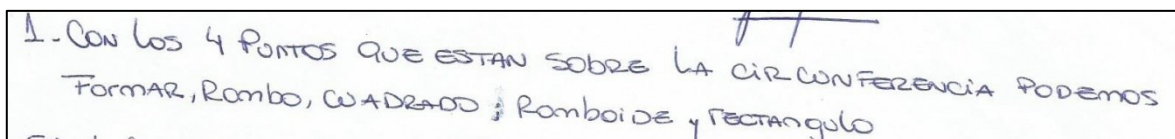 1- CON LOS 4 PUNTOS QUE ESTAN SOBRE LA CIRCUNFERENCIA PODEMOS
FORMAR, ROMBO, CUADRADO; ROMBOIDE y RECTANGULO